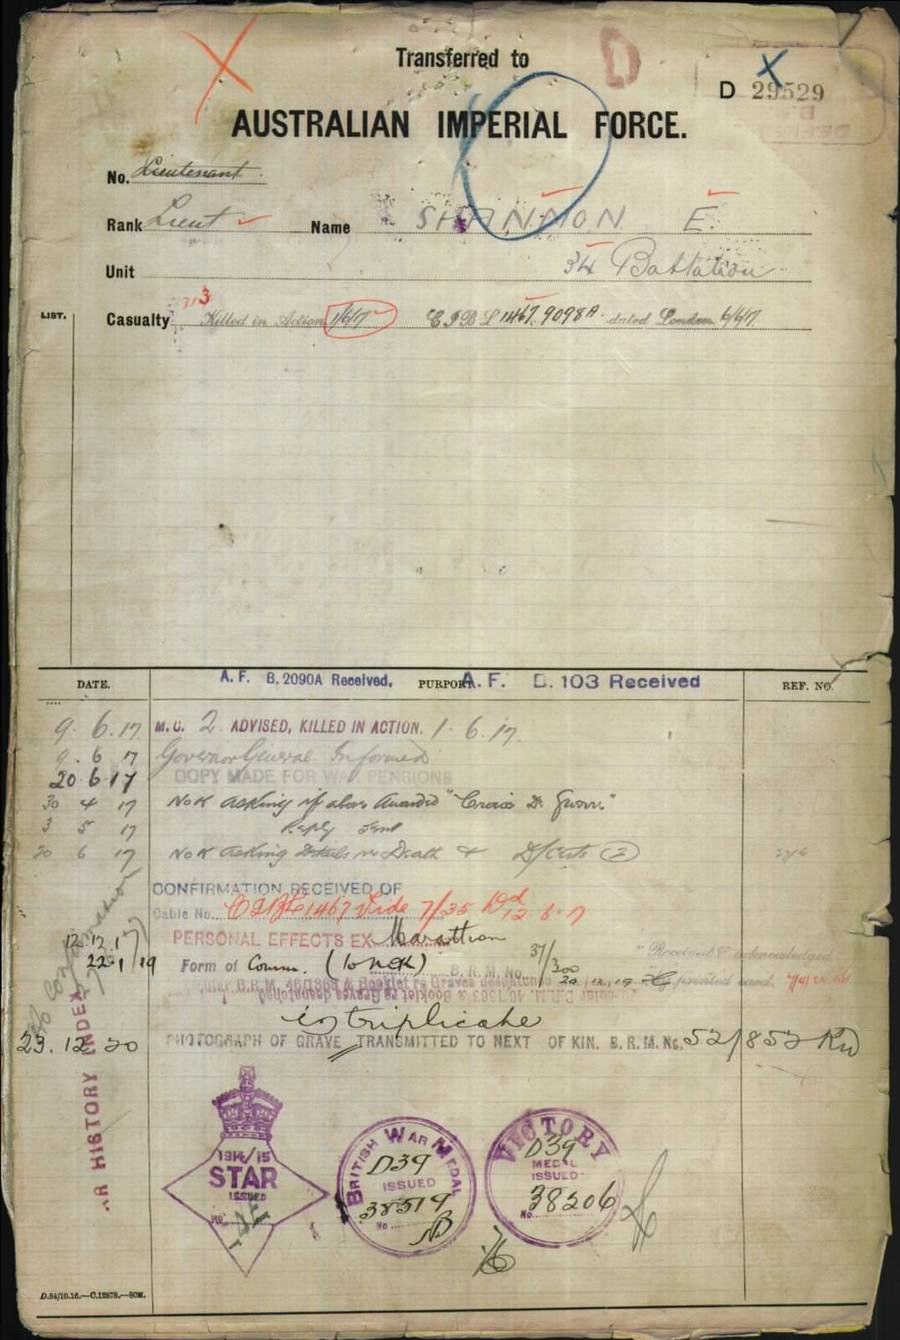 Transferred to
D
X
D 29529
AUSTRALIAN IMPERIAL FORCE.
No. Lieutenant
Rank Lieut Name SHANNON E.
Unit 34 Battalion
LIST.
313
Casualty Killed in Action 1/6/17 1467. 9098A. dated London 6/6/17
DATE. A. F. B. 2090A Received. PURPORT A. F. B. 103 Received REF. NO.
9. 6. 17 M.C. 2 ADVISED, KILLED IN ACTION. 1. 6. 17.
9. 6 17 Governor General Informed
20. 6. 17 COPY MADE FOR WAR PENSIONS
30 4 17 NoK asking if above Awarded "Croix De Guerre"
3 5 17 Reply Sent
20 6 17 NoK asking Details re Death & D/Certs (2)
CONFIRMATION RECEIVED OF
Cable No. 1467 Vide 7/35 Dd 12. 6. 17
12.12.17 PERSONAL EFFECTS EX Marathon
22.1.19 Form of Comm. (to NOK) B. R. M. No. 37/300 Received & acknowledged
20.12.19
in triplicate
23. 12. 20 PHOTOGRAPH OF GRAVE TRANSMITTED TO NEXT OF KIN. B. R. M. No. 52/852
AR HISTORY INDEX
1914/15
STAR
ISSUED
No
BRITISH WAR MEDAL
D39
ISSUED
38519
No
VICTORY
D39
MEDAL
ISSUED
38206
No.
D.84/10.16.—C.12878.—50M.